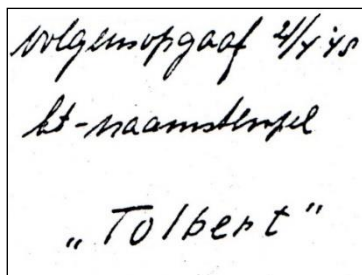 volgens opgaaf
kt-naamstempel
„Tolbert"